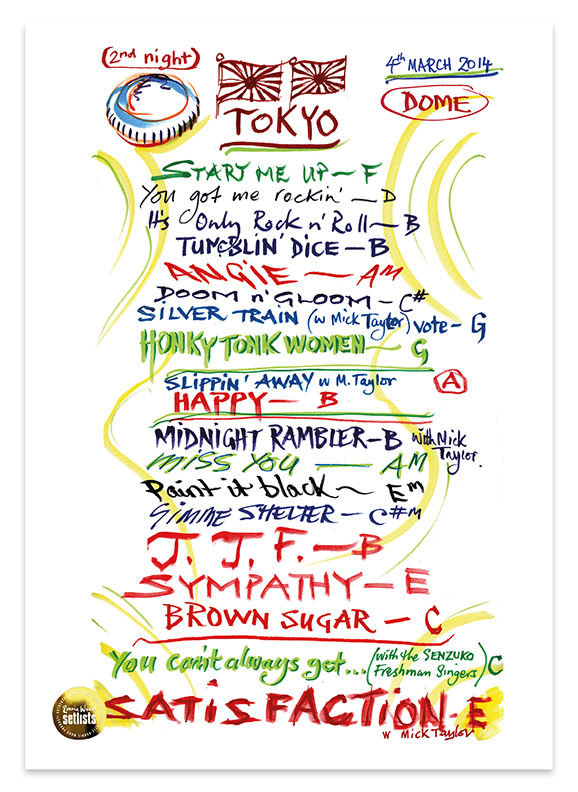 (2nd night)
4th MARCH 2014
TOKYO
DOME
START ME UP – F
You got me rockin' – D
It's Only Rock n' Roll – B
TUMBLIN' DICE – B
ANGIE – AM
DOOM n' GLOOM – C#
SILVER TRAIN (w Mick Taylor) vote – G
HONKY TONK WOMEN – G
SLIPPIN' AWAY w M. Taylor
A
HAPPY – B
MIDNIGHT RAMBLER – B with Mick Taylor.
MISS YOU – AM
Paint it black ~ EM
GIMME SHELTER – C#M
J. J. F. – B
SYMPATHY – E
BROWN SUGAR – C
You can't always get... (with the SENZUKO Freshman Singers) C
SATiSFACTION – E
w Mick Taylor
Ronnie Wood
setlists